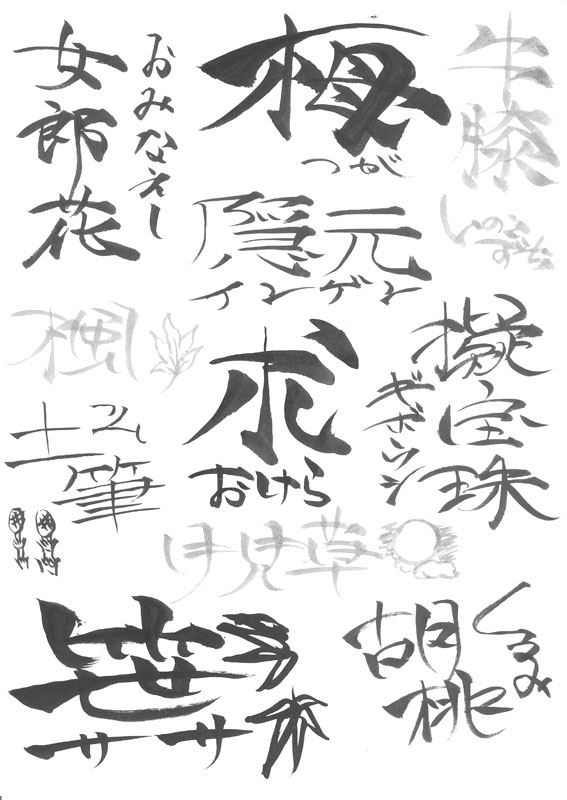 女郎花
おみなえし
栂
つが
牛膝
いのこずち
隠元
インゲン
楓
朮
おけら
擬宝珠
ギボウシ
土筆
つくし
月見草
笹
ササ
胡桃
くるみ